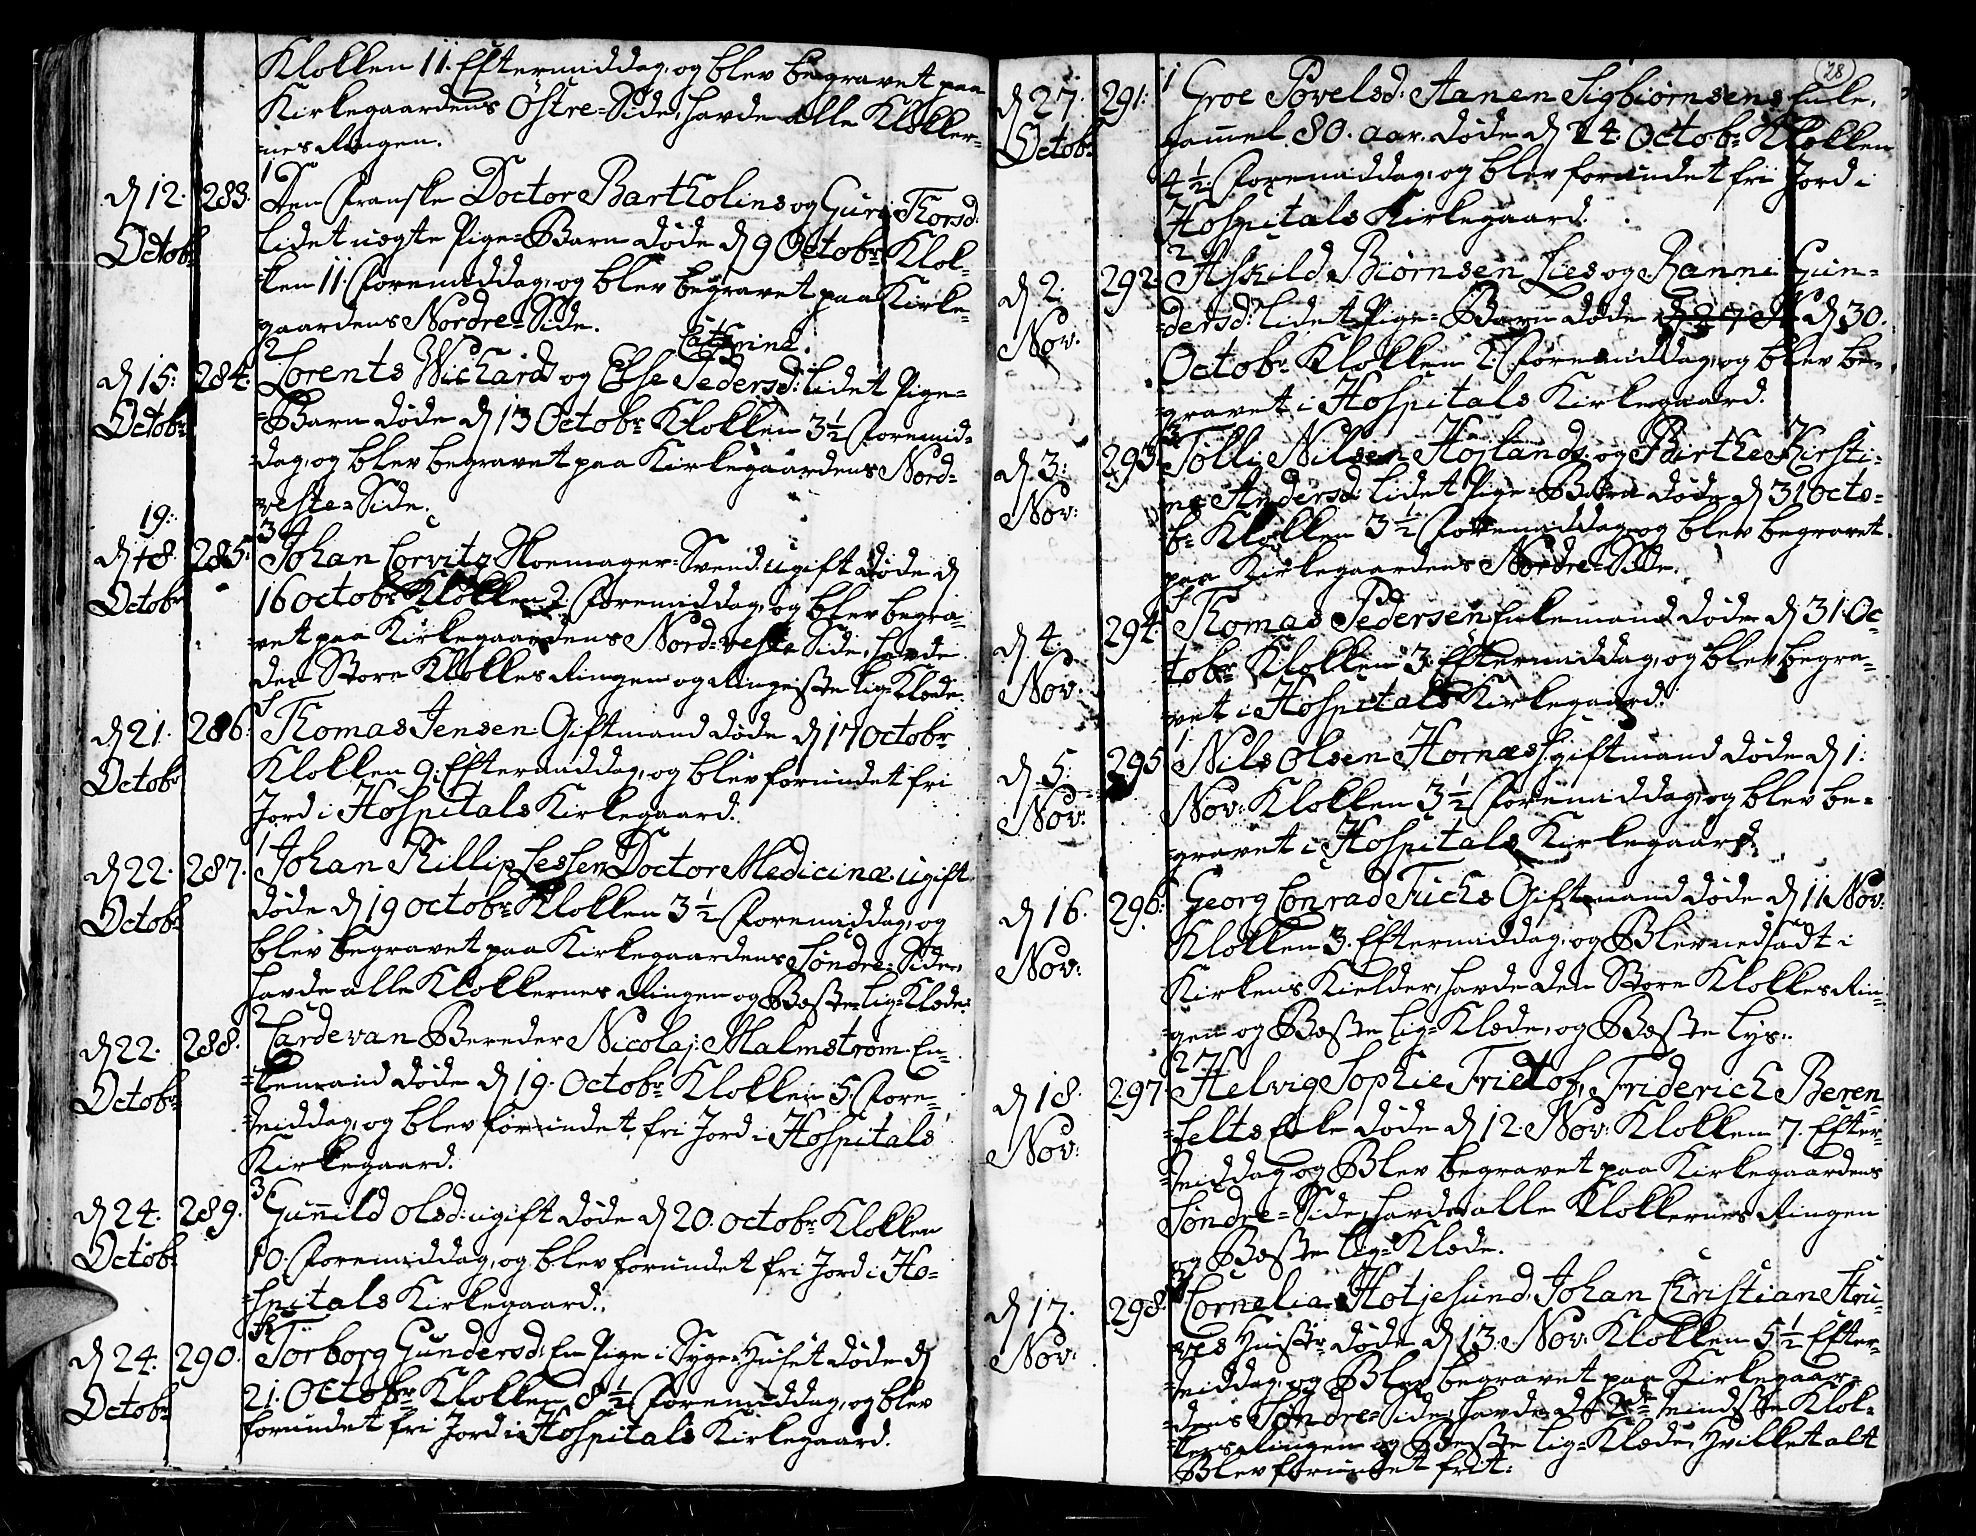 Klokken 11. Eftermiddag, og blev begravet paa
Kirkegaardens Östre-Side, havde alle Klokker-
nes Ringen.
1
d 12. 283. Den Franske Doctor Bartholins og Guri Thorsd:
Octobr lidet uægte Pige-Barn døde d 9 Octobr Klok-
ken 11. Formiddag, og blev begravet paa Kirke-
gaardens Nordre-Side.
Cathrine
2
d 15: 284. Lorents Wichards og Else Pedersd: lidet Pige-
Octobr -Barn døde d 13 Octobr Klokken 3½ Foremid-
-dag, og blev begravet paa Kirkegaardens Nord-
veste-Side.
19: 3
d 18. 285. Johan Corvitz Skoemager-Svend ugift døde d
Octobr 16 Octobr Klokken 2. Foremiddag, og blev begra-
vet paa Kirkegaardens Nord-veste Side, havde
den Store Klokkes Ringen og Ringeste lig-Klæde.
d 21. 286. Thomas Jensen Giftmand døde d 17 Octobr
Octobr Klokken 9. Eftermiddag, og blev forundet fri
Jord i Hospitals Kirkegaard.
1
d 22. 287. Johan Phillip Lessen Doctor Medicinæ ugift
Octobr døde d 19 Octobr Klokken 3½ Foremiddag, og
blev begravet paa Kirkegaardens Søndre-Side,
havde alle Klokkernes Ringen og Beste lig-Klæde.
2
d 22. 288. Cardevan Bereder Nicolaj Malmstrøm En-
Octobr -kemand døde d 19. Octobr Klokken 5. Fore-
-middag, og blev forundet fri Jord i Hospitals
Kirkegaard.
3
d 24. 289. Gunnild Olsd: ugift døde d 20. Octobr Klokken
Octobr 10. Foremiddag, og blev forundet fri Jord i Ho-
-spitals Kirkegaard.
d 24. 290. Törborg Gundersd: En Pige i Syge-Huset døde d
Octobr 21. Octobr Klokken 8½ Foremiddag, og blev
forundet fri Jord i Hospitals Kirkegaard.
28
1
d 27. 291. Groe Povelsd: Aanen Sigbiørnsens Enke,
Octobr gammel 80. aar. døde d 24. Octobr Klokken
4½. Foremiddag, og blev forundet fri Jord i
Hospitals Kirkegaard.
2
d 2. 292. Askild Biørnsen Lies og Ranni Gun-
Nov: -dersd: lidet Pige-Barn døde d 30.
Octobr Klokken 2. Foremiddag, og blev be-
gravet i Hospitals Kirkegaard.
3
d 3: 293. Tølli Nilsen Højlands og Birthe Kirsti-
Nov: ne Andersd: lidet Pige-Barn døde d 31 Octo-
br Klokken 3½ Foremiddag, og blev begravet
paa Kirkegaardens Nordre-Side.
d 4. 294. Thomas Pedersen Enkemand døde d 31. Oc-
Nov: tobr Klokken 3. Eftermiddag, og blev begra-
vet i Hospitals Kirkegaard.
1
d 5: 295. Nils Olsen Hornæs giftmand døde d 1:
Nov: Nov: Klokken 3½ Foremiddag, og blev be-
gravet i Hospitals Kirkegaard.
d 16. 296. Georg Conrad Fuchs Giftmand døde d 11. Nov:
Nov: Klokken 3. Eftermiddag, og Blev nedsadt i
Kirkens Kielder, havde den Store Klokkes Rin-
gen og Beste lig-Klæde, og Beste lys.
2
d 18. 297. Helvig Sophie Friderich Beren-
Nov: -felts Enke døde d 12. Nov: Klokken 7. Efter-
-middag og Blev begravet paa Kirkegaardens
Søndre-Side, havde alle Klokkernes Ringen
og Beste lig-Klæde.
d 17. 298. Cornelia Hotjesund, Johan Christian Stru-
Nov: ves Hustr. døde d 13. Nov: Klokken 5½ Efter-
-middag, og Blev begravet paa Kirkegaar-
-dens Søndre-Side, havde de 2de mindste Klok-
-kers Ringen og Beste lig-Klæde, Hvilket alt
Blev forundet frit.